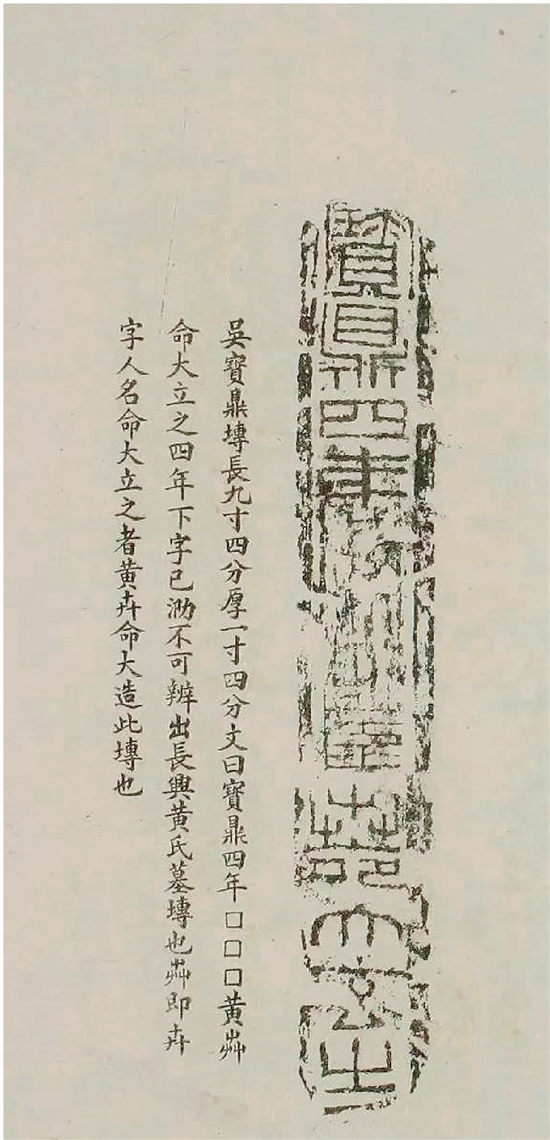 寶鼎四年
黃茻命大立之
吳寶鼎塼長九寸四分厚一寸四分文曰寶鼎四年□□□黃茻
命大立之四年下字已泐不可辨出長興黃氏墓塼也茻即卉
字人名命大立之者黃卉命大造此塼也